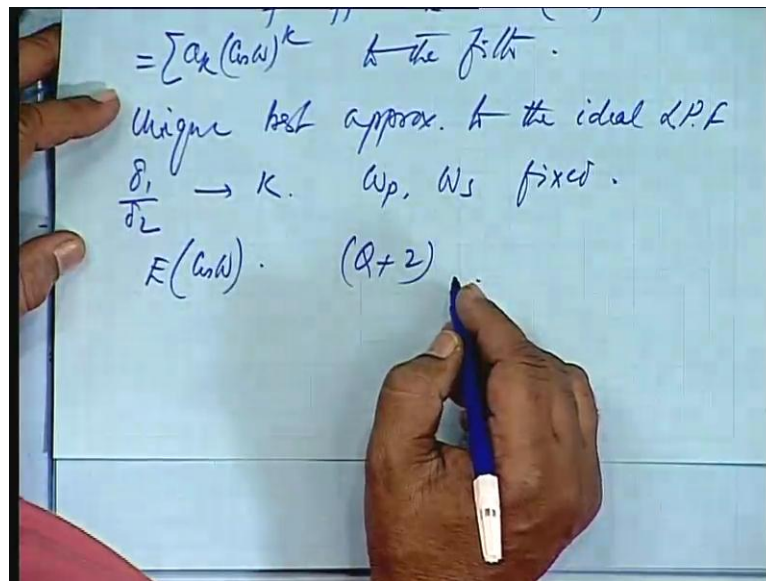 = Σ aₖ (Cos ω)^k to the filtr.
Unique best approx. to the ideal L.P.F
δ₁/δ₂ → K. ωp, ωs fixed.
E(Cos ω). (Q+2)